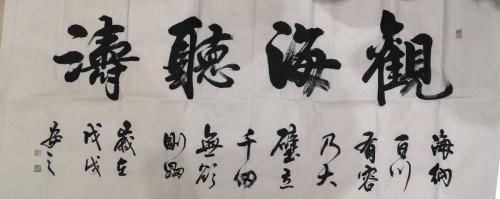 觀海聽濤
海納
百川
有容
乃大
壁立
千仞
無欲
則剛
歲在
戊戌